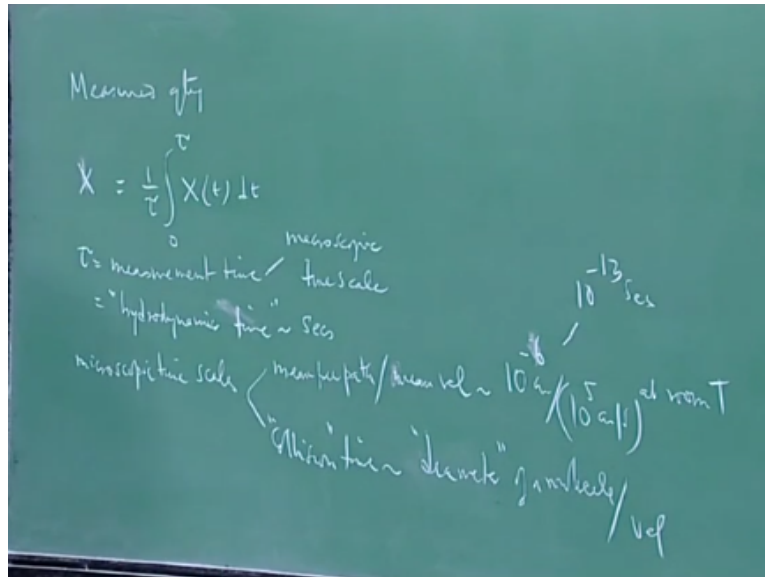 Measured qty
X = 1/τ ∫₀^τ X(t) dt
τ = measurement time / macroscopic time scale
= "hydrodynamic time" ~ secs
microscopic time scales
mean free path / mean vel ~ 10^-8 cm / (10^5 cm/s) at room T
10^-13 secs
"collision" time ~ "diameter" of a molecule / vel